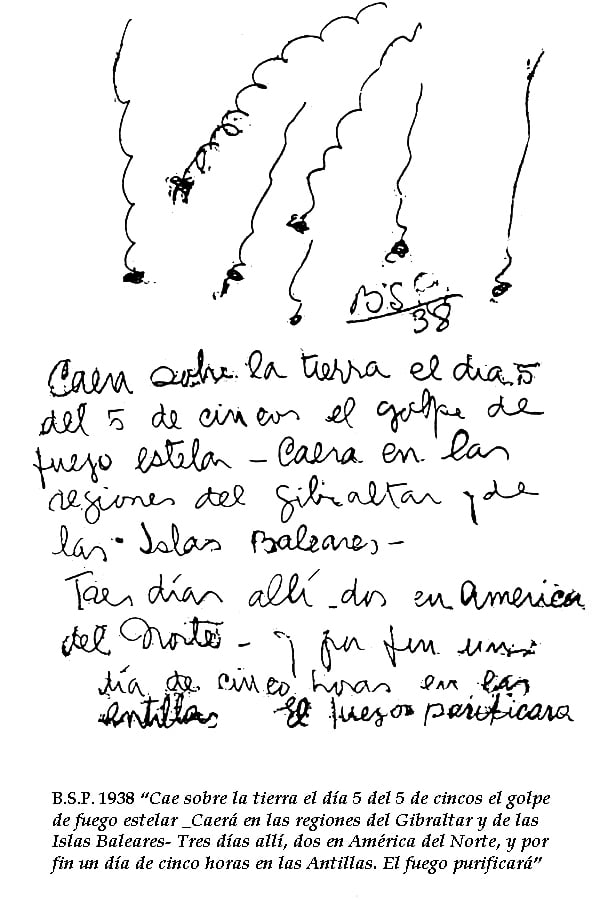 B.S.P.
38
Caera sobre la tierra el dia 5
del 5 de cincos el golpe de
fuego estelar - Caera en las
regiones del Gibraltar y de
las Islas Baleares -
Tres días allí - dos en America
del Norte - y por fin un
día de cinco horas en las
antillas El fuego purificara
B.S.P. 1938 “Cae sobre la tierra el día 5 del 5 de cincos el golpe
de fuego estelar _Caerá en las regiones del Gibraltar y de las
Islas Baleares- Tres días allí, dos en América del Norte, y por
fin un día de cinco horas en las Antillas. El fuego purificará”